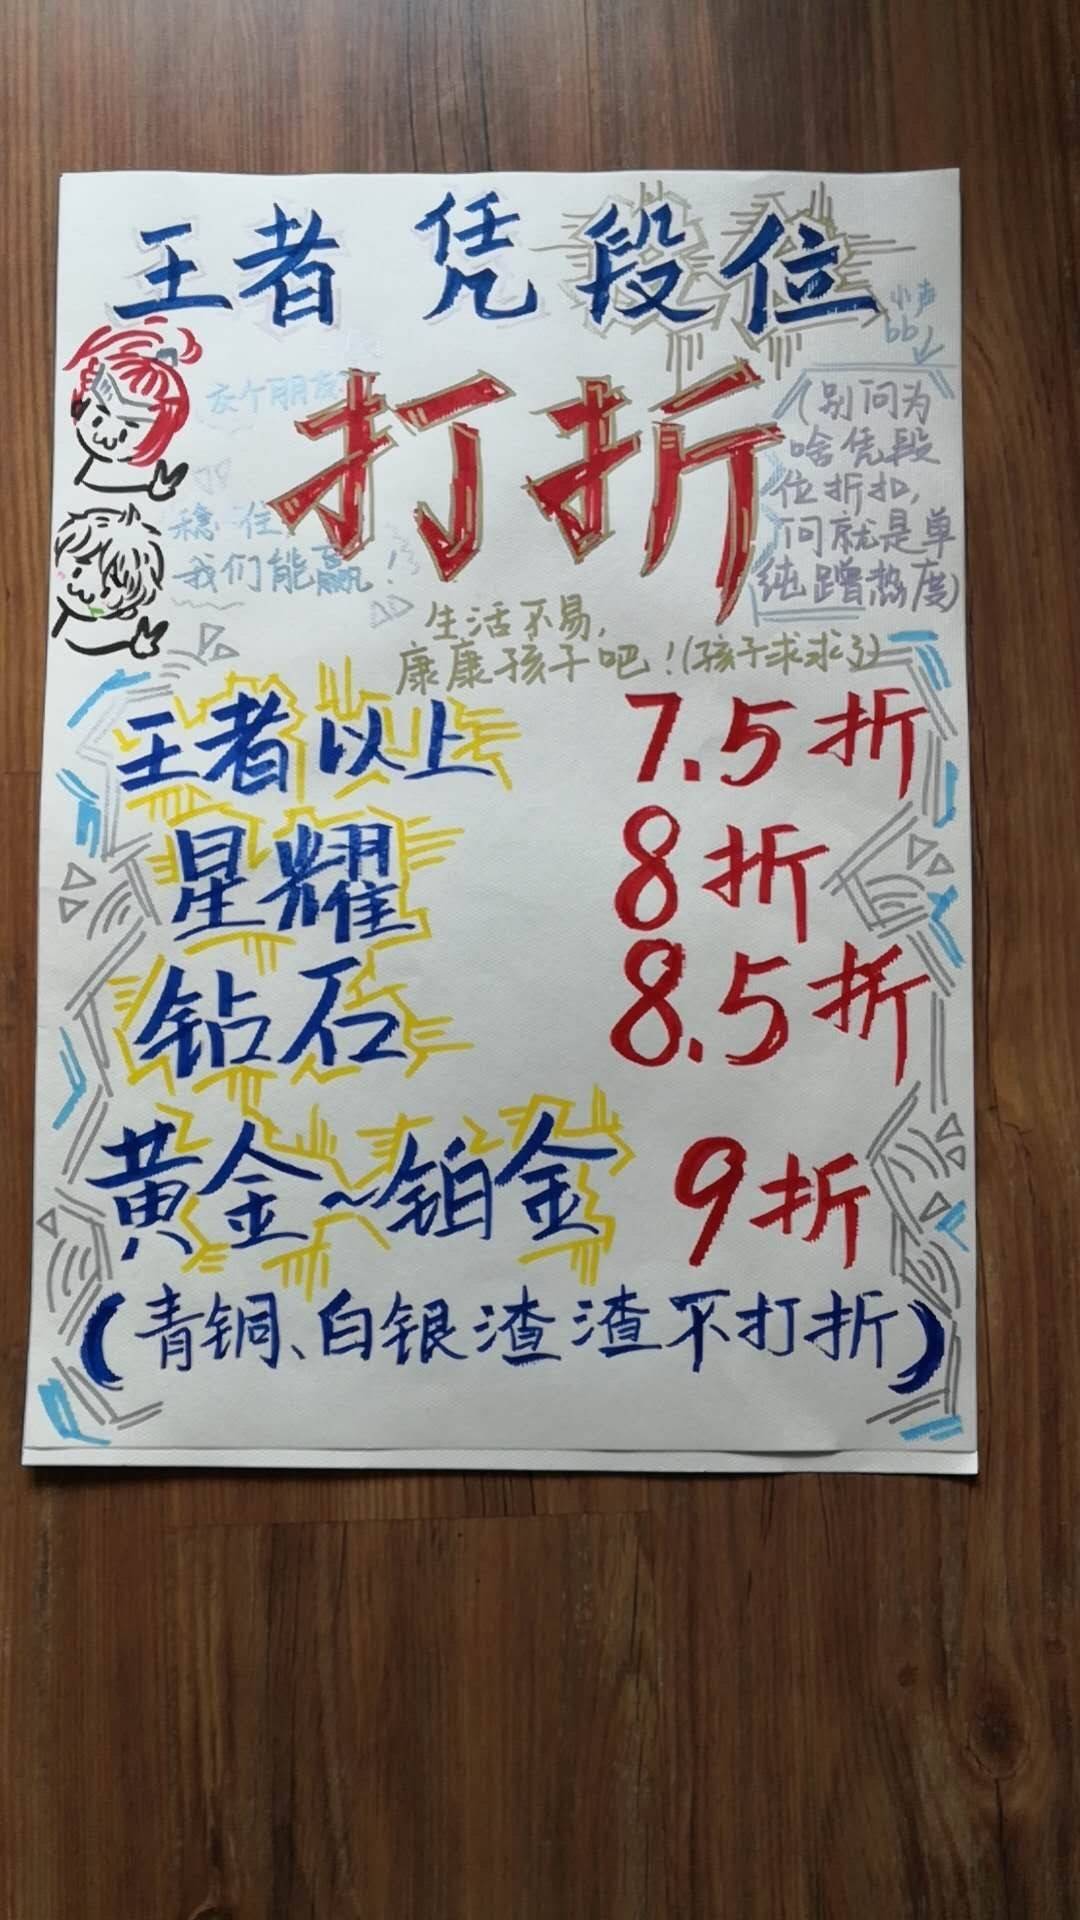 王者 凭 段位
打折
小声
bb
交个朋友
(别问为
啥凭段
位折扣,
问就是单
纯蹭热度)
稳住,
我们能赢!
生活不易,
康康孩子吧!(孩子求求了)
王者以上 7.5折
星耀 8折
钻石 8.5折
黄金~铂金 9折
(青铜、白银渣渣不打折)